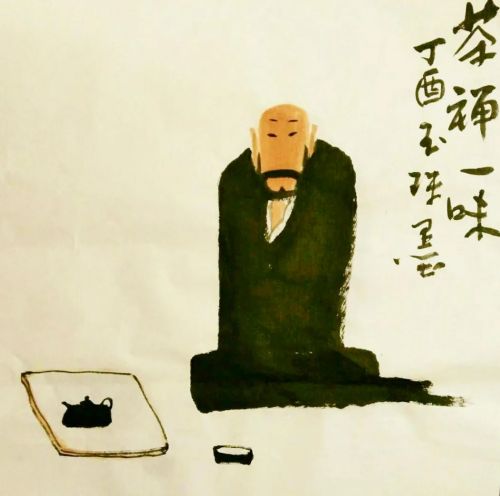 茶禅一味
丁酉玉珠墨